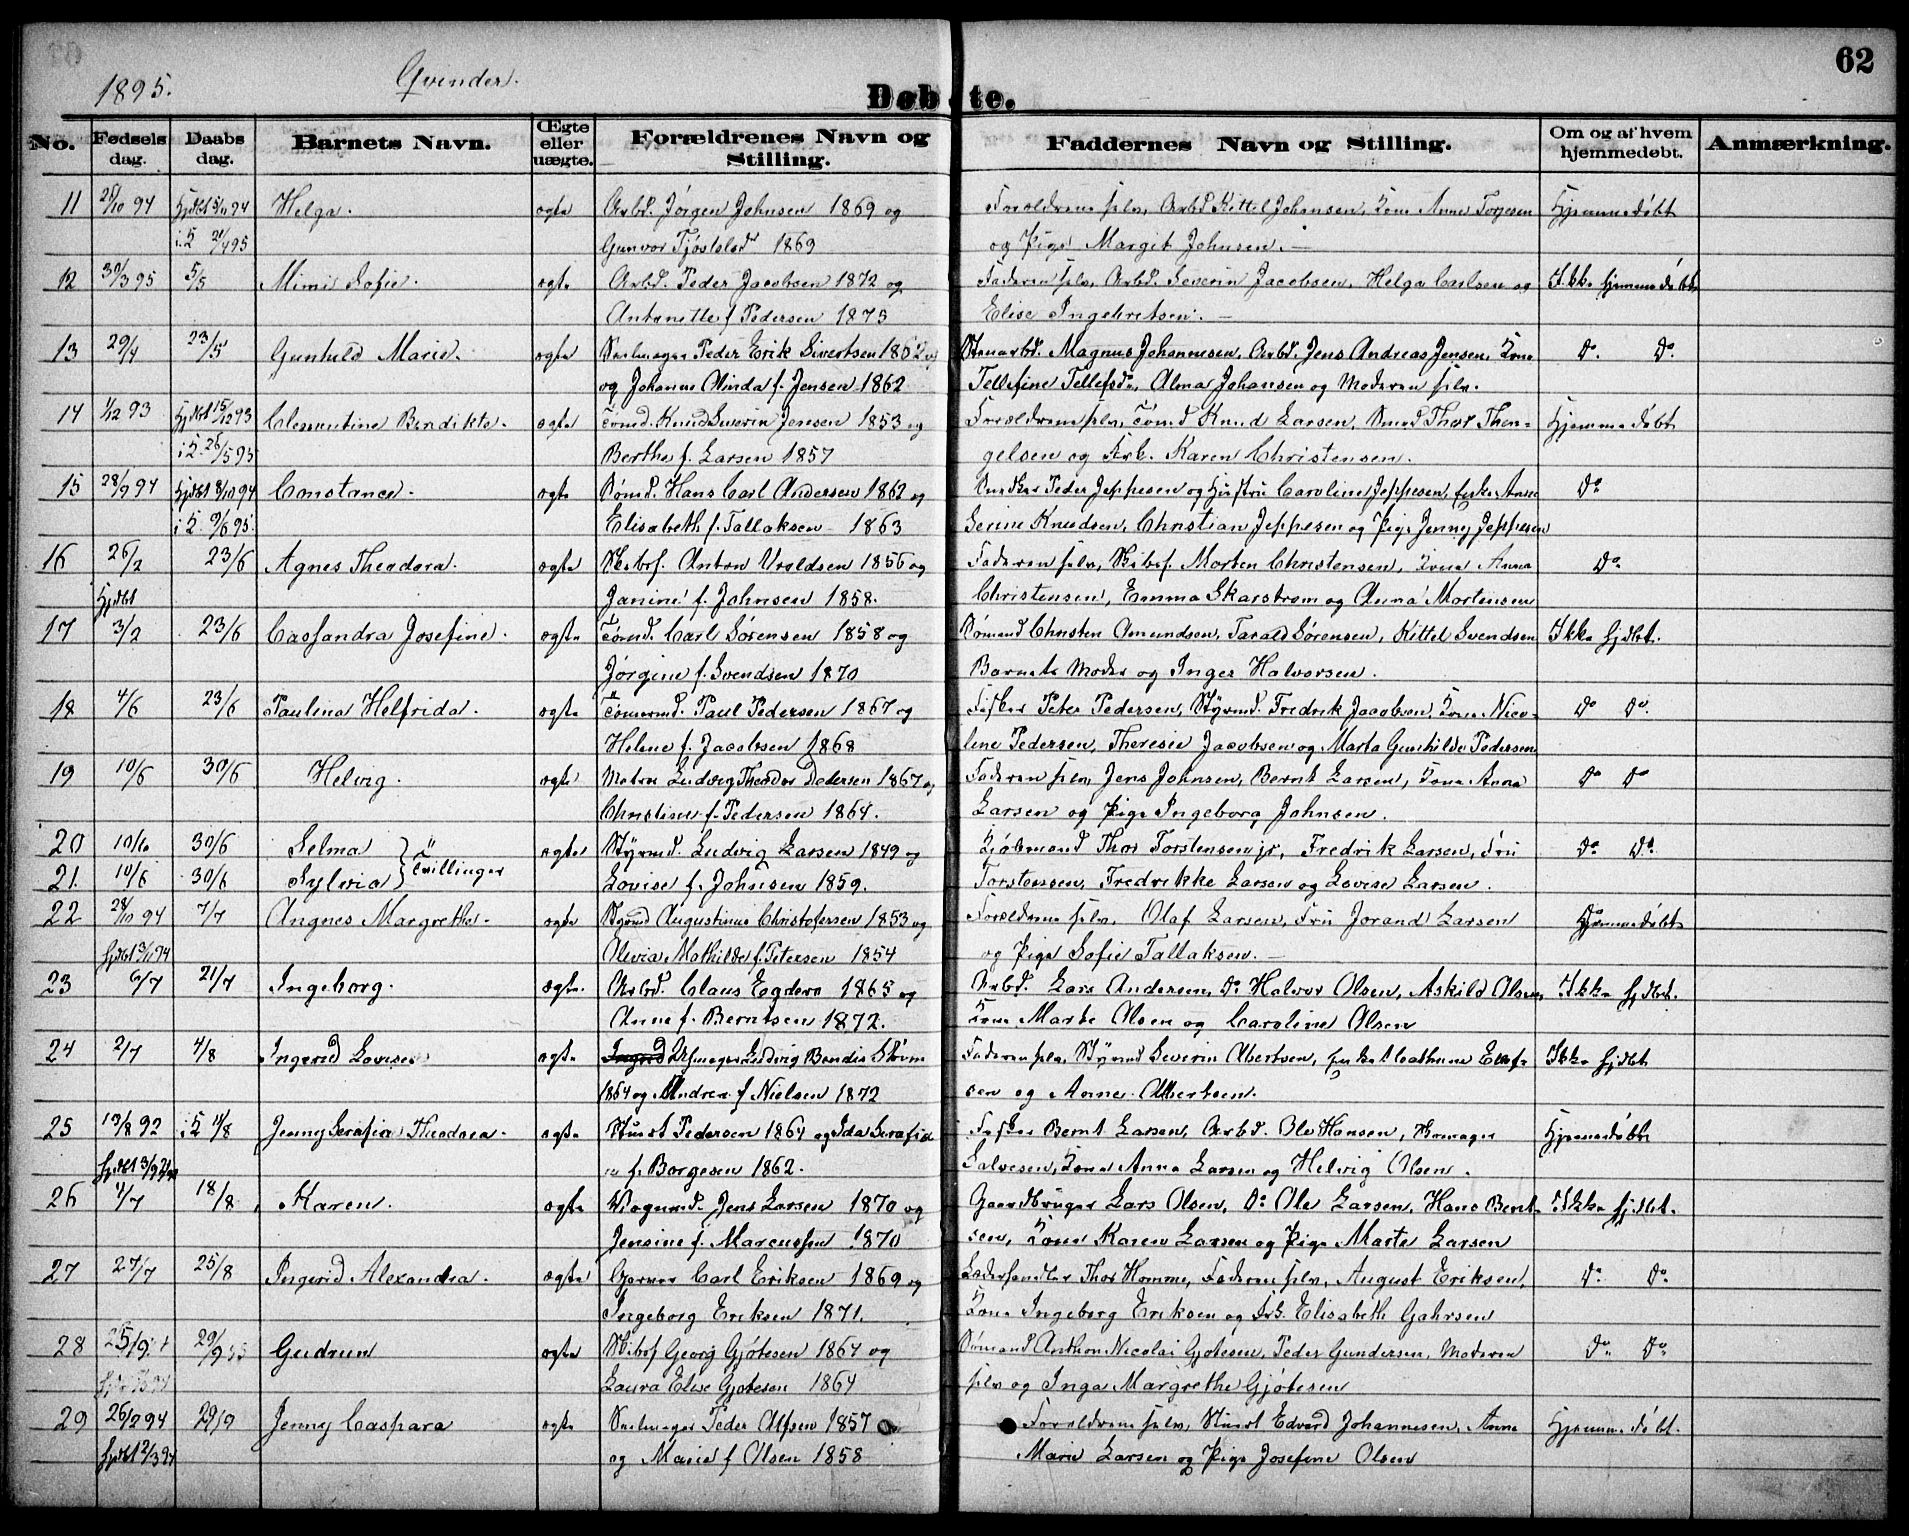 62
1895. Qvinder.
Døbte.
No. Fødsels dag. Daabs dag. Barnets Navn. Ægte eller uægte. Forældrenes Navn og Stilling. Faddernes Navn og Stilling. Om og af hvem hjemmedøbt. Anmærkning.
11 28/10 94 Hjdbt 5/11 94 Helga. ægte Arbd. Jörgen Johnsen 1869 og Forældrene selv, Arbd Kittel Johansen, Kone Anne Torjesen Hjemmedöbt
i K 21/4 95 Gunvor Tjöstelsd 1869 og Pige Margit Johnsen.
12 30/3 95 5/5 Mimi Sofie. ægte Arbd. Peder Jacobsen 1872 og Faderen selv, Arbd. Severin Jacobsen, Helga Carlsen og Ikke hjemmedöbt
Antonette f Pedersen 1875 Elise Ingebretsen.
13 29/4 23/5 Gunhild Marie. ægte Seilmager Peder Erik Sivertsen 1862 og Stenarbd. Magnus Johannesen, Arbd. Jens Andreas Jensen, Kone Do. Do.
og Johanne Alinda f. Jensen 1862 Tellefine Tellefsdr, Alma Johansen og Moderen selv.
14 1/12 93 Hjdbt 15/12 93 Clementine Bendikte. ægte Tömd. Knud Severin Jensen 1853 og Forældrene selv, Tömd Knud Larsen, Smed Thor Then- Hjemmedöbt
i K. 26/5 95 Berthe f. Larsen 1857 gelsen og Frk. Karen Christensen.
15 28/9 94 Hjdbt 8/10 94 Constance. ægte Sömd. Hans Carl Andersen 1862 og Snedker Peder Jeppesen og Hustru Caroline Jeppesen, Enke Anne Do
i K 9/6 95. Elisabeth f. Tallaksen 1863 Serine Knudsen, Christian Jeppesen og Pige Jenny Jeppesen
16 26/2 23/6 Agnes Theodora. ægte Skibsf. Anton Uvaldsen 1856 og Faderen selv, Skibsf. Morten Christensen, Kone Anna Do
Hjdbt Janine f. Johnsen 1858. Christensen, Emma Skarstrøm og Anna Mortensen
17 3/2 23/6 Cassandra Josefine. ægte Tömd. Carl Sörensen 1858 og Sömand Christen Amundsen, Tarald Sörensen, Kittel Svendsen Ikke hjdbt.
Jörgine f. Svendsen 1870 Barnets Moder og Inger Halvorsen.
18 4/6 23/6 Paulina Helfrida. ægte Tömmermd. Paul Pedersen 1867 og Fisker Peter Pedersen, Styrmd. Fredrik Jacobsen, Kone Nico- Do Do.
Helene f. Jacobsen 1868 line Pedersen, Theresie Jacobsen og Marta Gunhilde Pedersen
19 10/6 30/6 Helvig. ægte Matros Ludvig Theodor Pedersen 1867 og Faderen selv, Jens Johnsen, Bernt Larsen, Kone Anna Do Do
Christine f. Pedersen 1864. Larsen og Pige Ingeborg Johnsen.
20 10/6 30/6 Selma } ægte Styrmd. Ludvig Larsen 1849 og Kjöbmand Thor Torstensen jr, Fredrik Larsen, Fru Do. Do.
21. 10/6 30/6 Sylvia } Tvillinger Lovise f. Johnsen 1859. Torstensen, Fredrikke Larsen og Lovise Larsen.
22 28/10 94 7/7 Angnes Margrethe. ægte Styrmd Augustinus Christofersen 1853 og Forældrene selv, Olaf Larsen, Fru Jorand Larsen Do Hjemmedöbt
Hjdbt 3/11 94 Olivia Mathilde f. Petersen 1854 og Pige Sofie Tallaksen.
23 6/7 21/7 Ingeborg. ægte. Arbd. Claus Egdero 1865 og Arbd. Lars Andersen, Do Halvor Olsen, Askild Olsen, Ikke hjdbt.
Anne f. Berntsen 1872. Kone Marte Olsen og Caroline Olsen
24 2/7 4/8 Ingerid Lovise ægte Ludvig Bendix Ström Faderen selv, Styrmd Severin Albertsen, Enke Cathrine Ellef- Ikke hjdbt
1864 og Andrea f Nielsen 1872 sen og Anne Albertsen.
25 13/8 92 i K 11/8 Jenny Serafia Theodora. ægte Stuert Pedersen 1864 og Ida Serafia Fisker Bernt Larsen, Arbd. Ole Hansen, Hjemmedöbt
Hjdbt 3/9 92 f. Borgesen 1862. Salvesen, Kone Anna Larsen og Helvig Olsen.
26 4/7 18/8 Karen. ægte Vognmd. Jens Larsen 1870 og Gaardbruger Lars Olsen, Do Ole Larsen, Hans Bernt- Ikke hjdbt.
Jensine f. Marcussen 1870 sen, Kone Karen Larsen og Pige Marte Larsen
27 27/7 25/8 Ingerid Alexandra. ægte Garver Carl Eriksen 1869 og Læderhandler Thor Homme, Faderen selv, August Eriksen, Do. Do.
Ingeborg Eriksen 1871. Kone Ingeborg Eriksen og Frk. Elisabeth Gahrsen
28 25/9 29/9 95 Gudrun ægte Skibsf Georg Gjötesen 1864 og Sömand Anthon Nicolai Gjötesen, Peder Gundersen, Moderen Do. Do.
Laura Elise Gjötesen 1864 selv og Inga Margrethe Gjötesen
29 26/2 94 29/9 Jenny Caspara ægte Seilmager Peder Olsen 1857 Forældrene selv, Stuert Edvard Johannesen, Anne Hjemmedöbt.
Hjdbt 2/3 94 og Marie f Olsen 1858 Marie Larsen og Pige Josefine Olsen